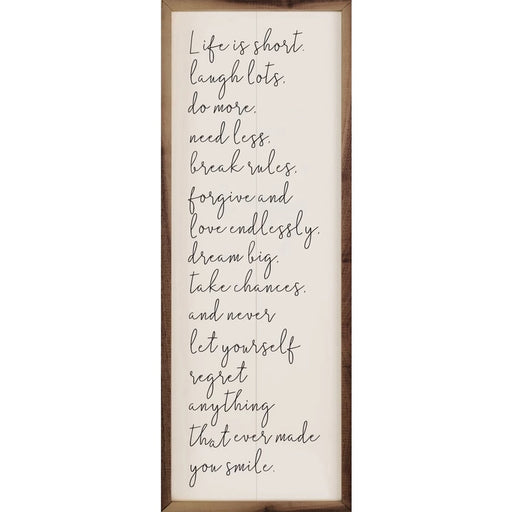 Life is short.
laugh lots.
do more.
need less.
break rules.
forgive and
love endlessly.
dream big.
take chances.
and never
let yourself
regret
anything
that ever made
you smile.